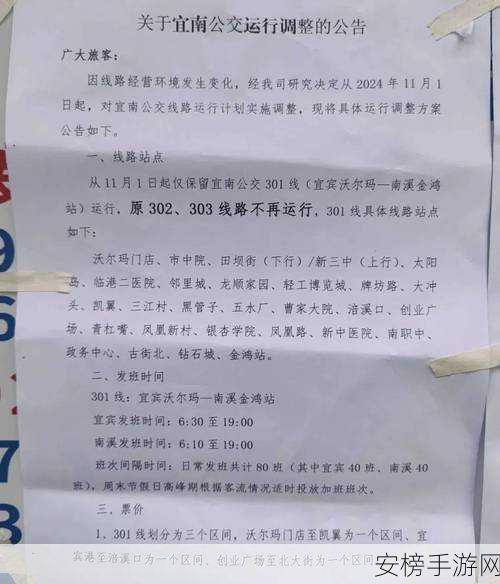 关于宜南公交运行调整的公告
广大旅客：
因线路经营环境发生变化，经我司研究决定从 2024 年 11 月 1
日起，对宜南公交线路运行计划实施调整，现将具体运行调整方案
公告如下。
一、线路站点
从 11 月 1 日起仅保留宜南公交 301 线（宜宾沃尔玛—南溪金鸿
站）运行，原 302、303 线路不再运行，301 线具体线路站点
如下：
沃尔玛门店、市中院、田坝街（下行）/新三中（上行）、太阳
岛、临港二医院、邻里城、龙顺家园、轻工博览城、牌坊路、大冲
头、凯翼、三江村、黑管子、五水厂、曹家大院、涪溪口、创业广
场、青杠嘴、凤凰新村、银杏学院、凤凰路、新中医院、南职中、
政务中心、古街北、钻石城、金鸿站。
二、发班时间
301 线：宜宾沃尔玛—南溪金鸿站
宜宾发班时间：6:30 至 19:00
南溪发班时间：6:30 至 19:00
班次间隔时间：日常发班共计 80 班（其中宜宾 40 班、南溪 40
班），周末节假日高峰期根据客流情况适时投放加班班次。
三、票价
1、301 线划分为三个区间，沃尔玛门店至凯翼为一个区间、宜
宾港至涪溪口为一个区间、创业广场至北大街为一个区间
安榜手游网
9
6
7
3